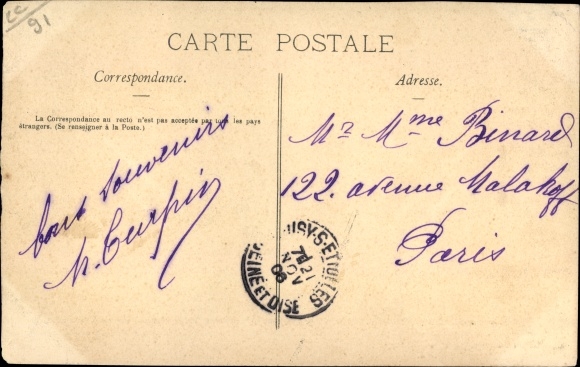 CC
91
CARTE POSTALE
Correspondance.
Adresse.
La Correspondance au recto n'est pas acceptée par tous les pays
étrangers. (Se renseigner à la Poste.)
bons souvenirs
M. Turpin
Mr Mme Binard
122. avenue Malakoff
Paris
SEINE ET OISE
7 21
NOV